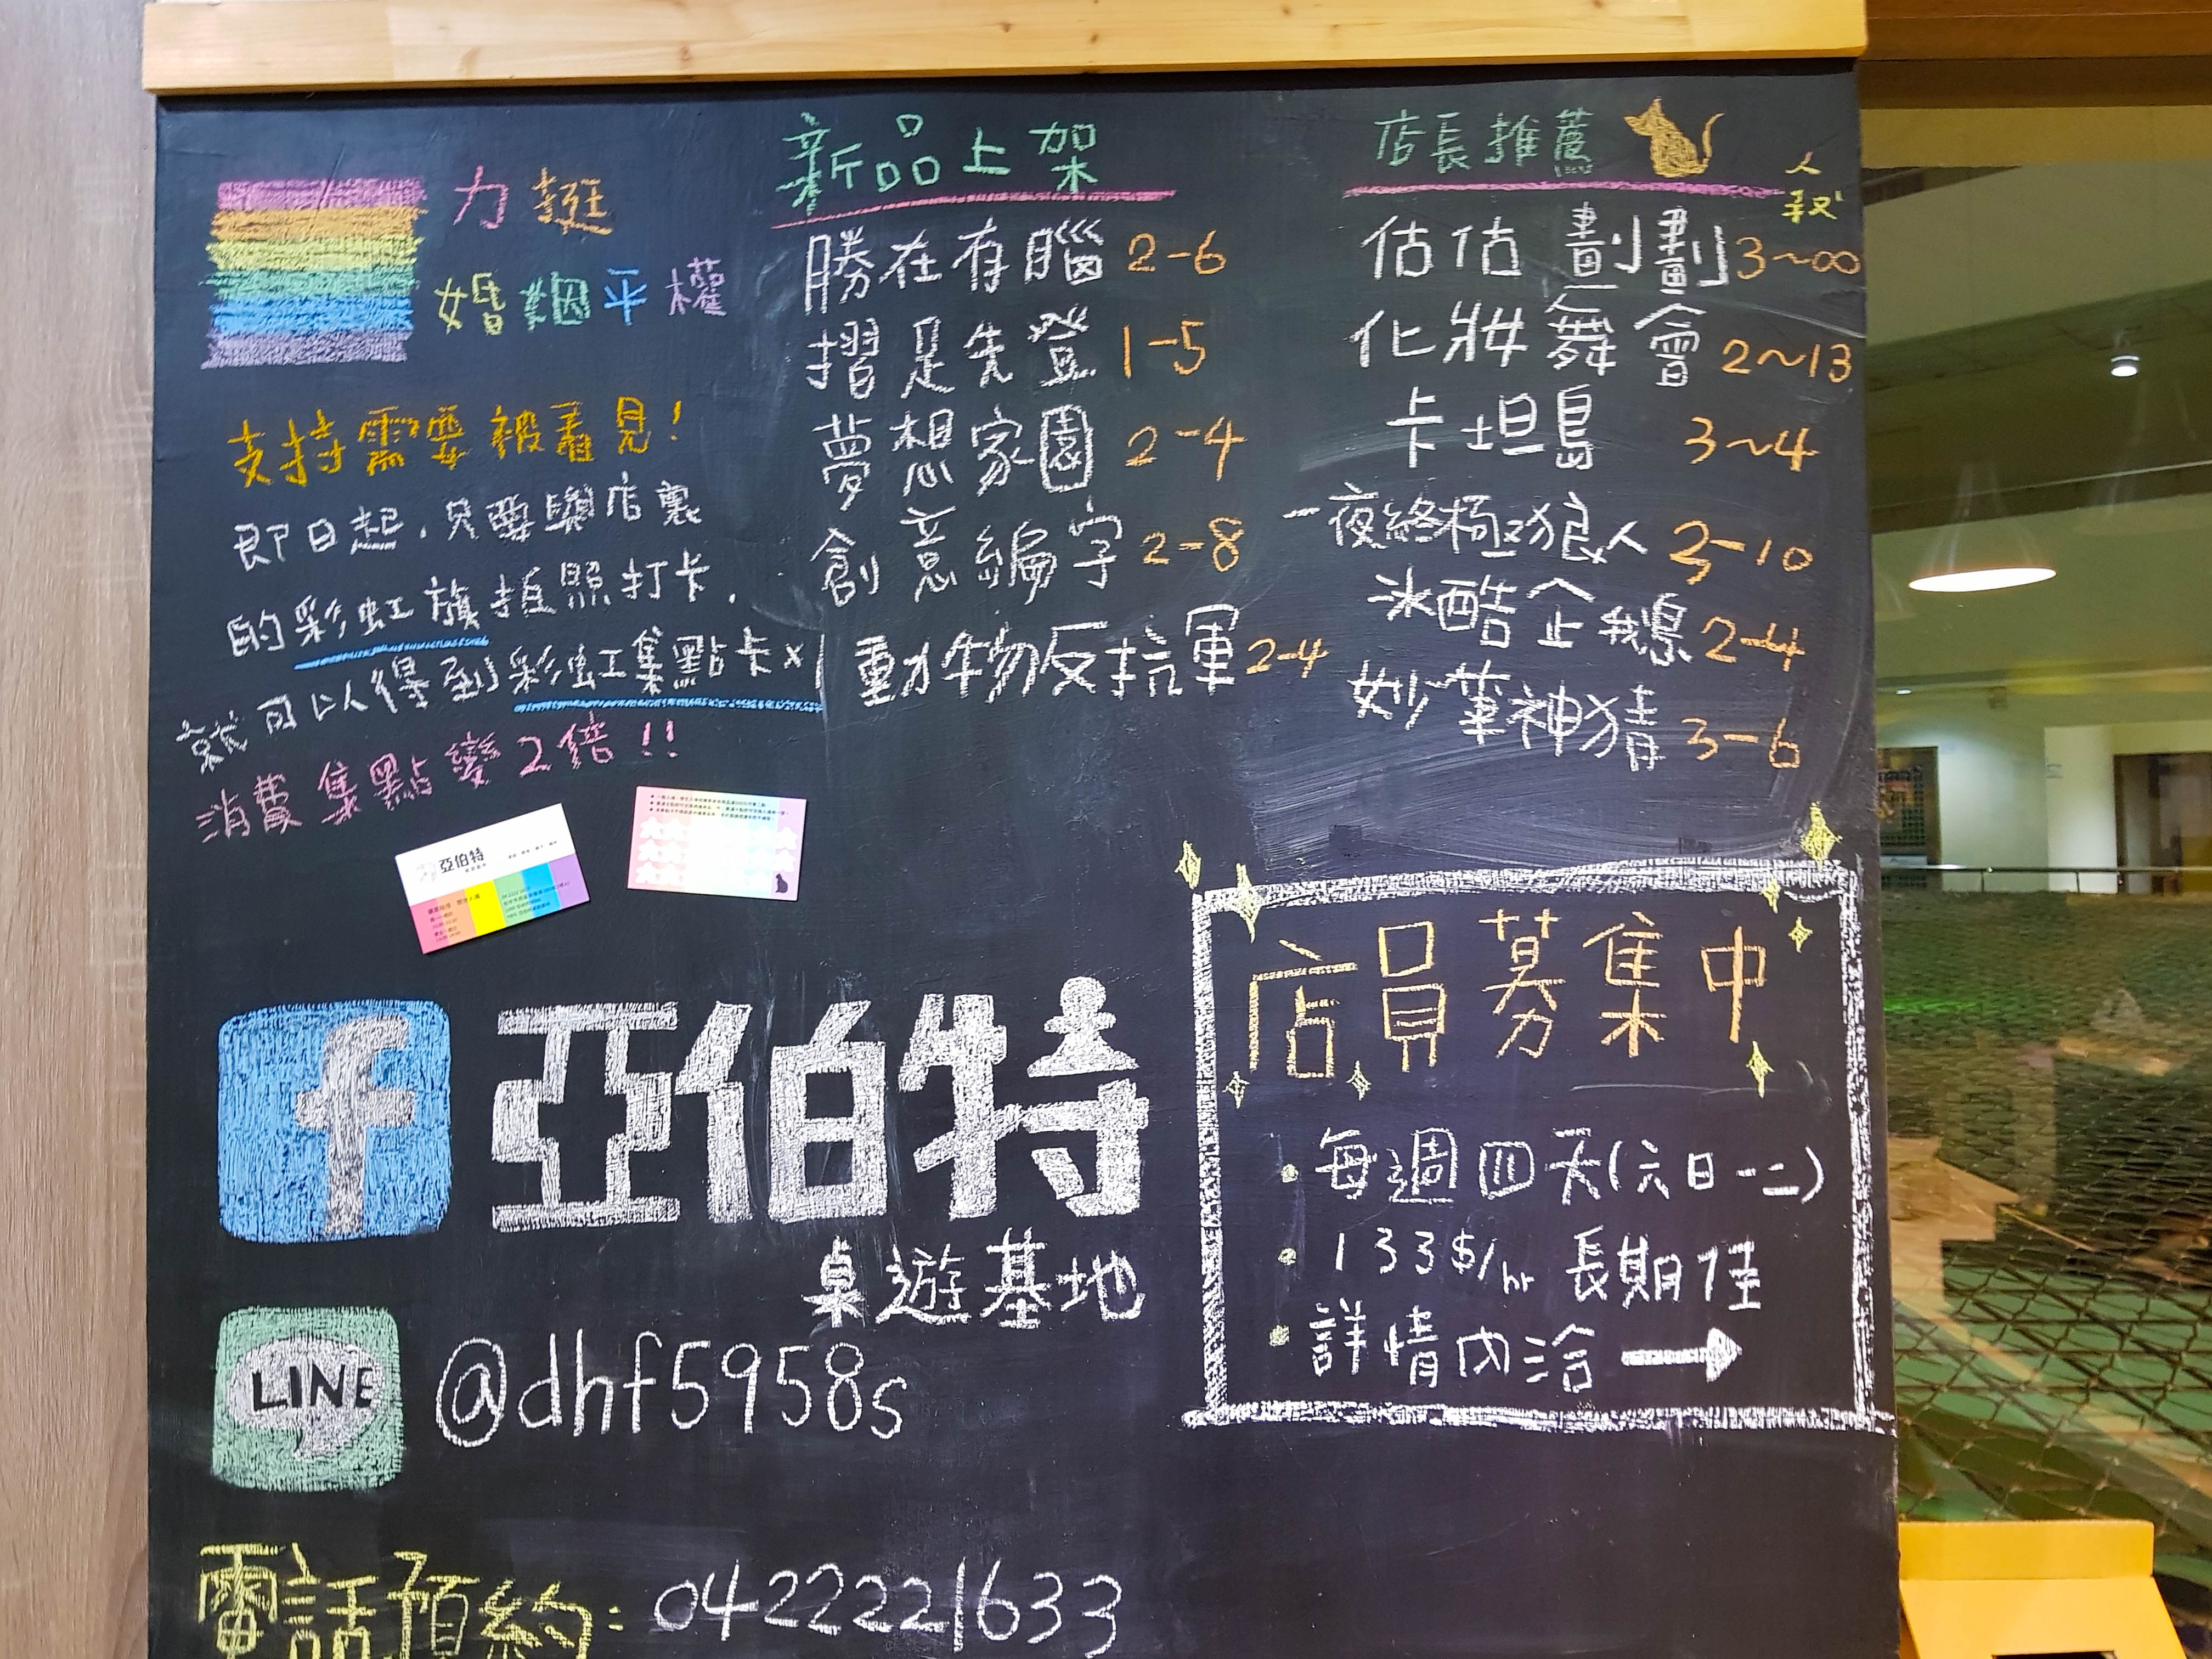 力挺
婚姻平權
支持需要被看見!
即日起，只要與店裏
的彩虹旗拍照打卡，
就可以得到彩虹集點卡x1
消費集點變2倍!!
新品上架
勝在有腦 2-6
摺足先登 1-5
夢想家園 2-4
創意編字 2-8
動物反抗軍 2-4
店長推薦
人數
估估劃劃 3~∞
化妝舞會 2~13
卡坦島 3~4
一夜終極狼人 3-10
冰酷企鵝 2-4
妙筆神猜 3-6
亞伯特
f 亞伯特
桌遊基地
LINE @dhf5958s
電話預約: 0422221633
店員募集中
·每週四天(六日一二)
·133$/hr 長期佳
·詳情內洽 →